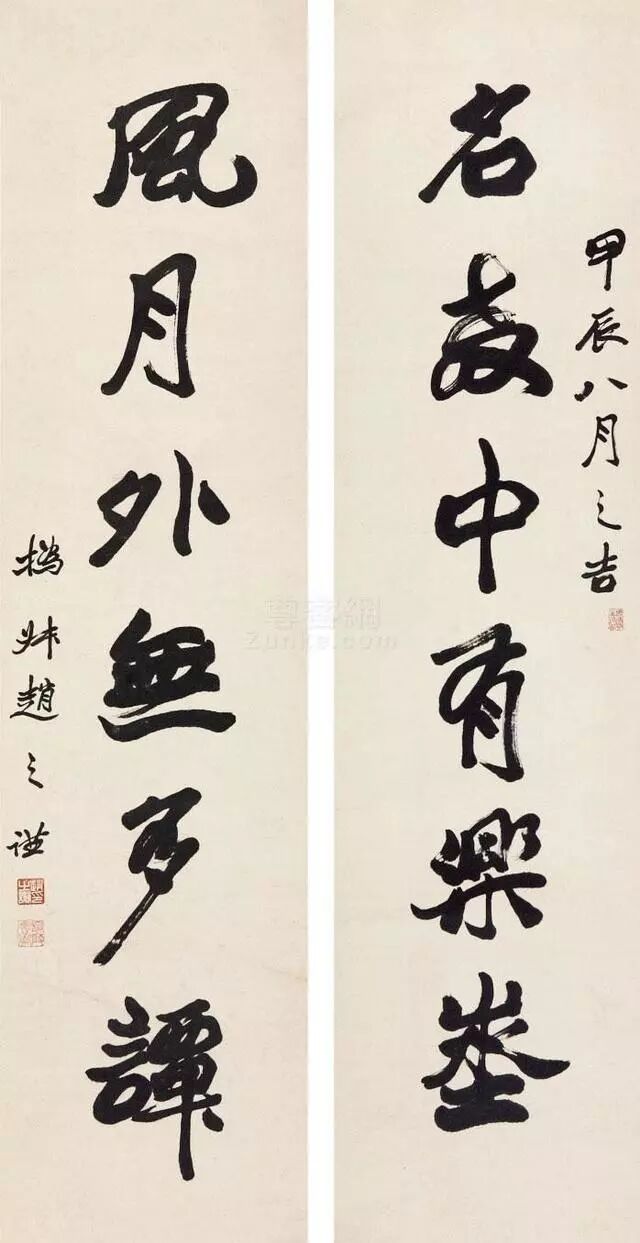 甲辰八月之吉
名教中有樂埊
風月外無多譚
撝叔趙之謙
Zunke.com